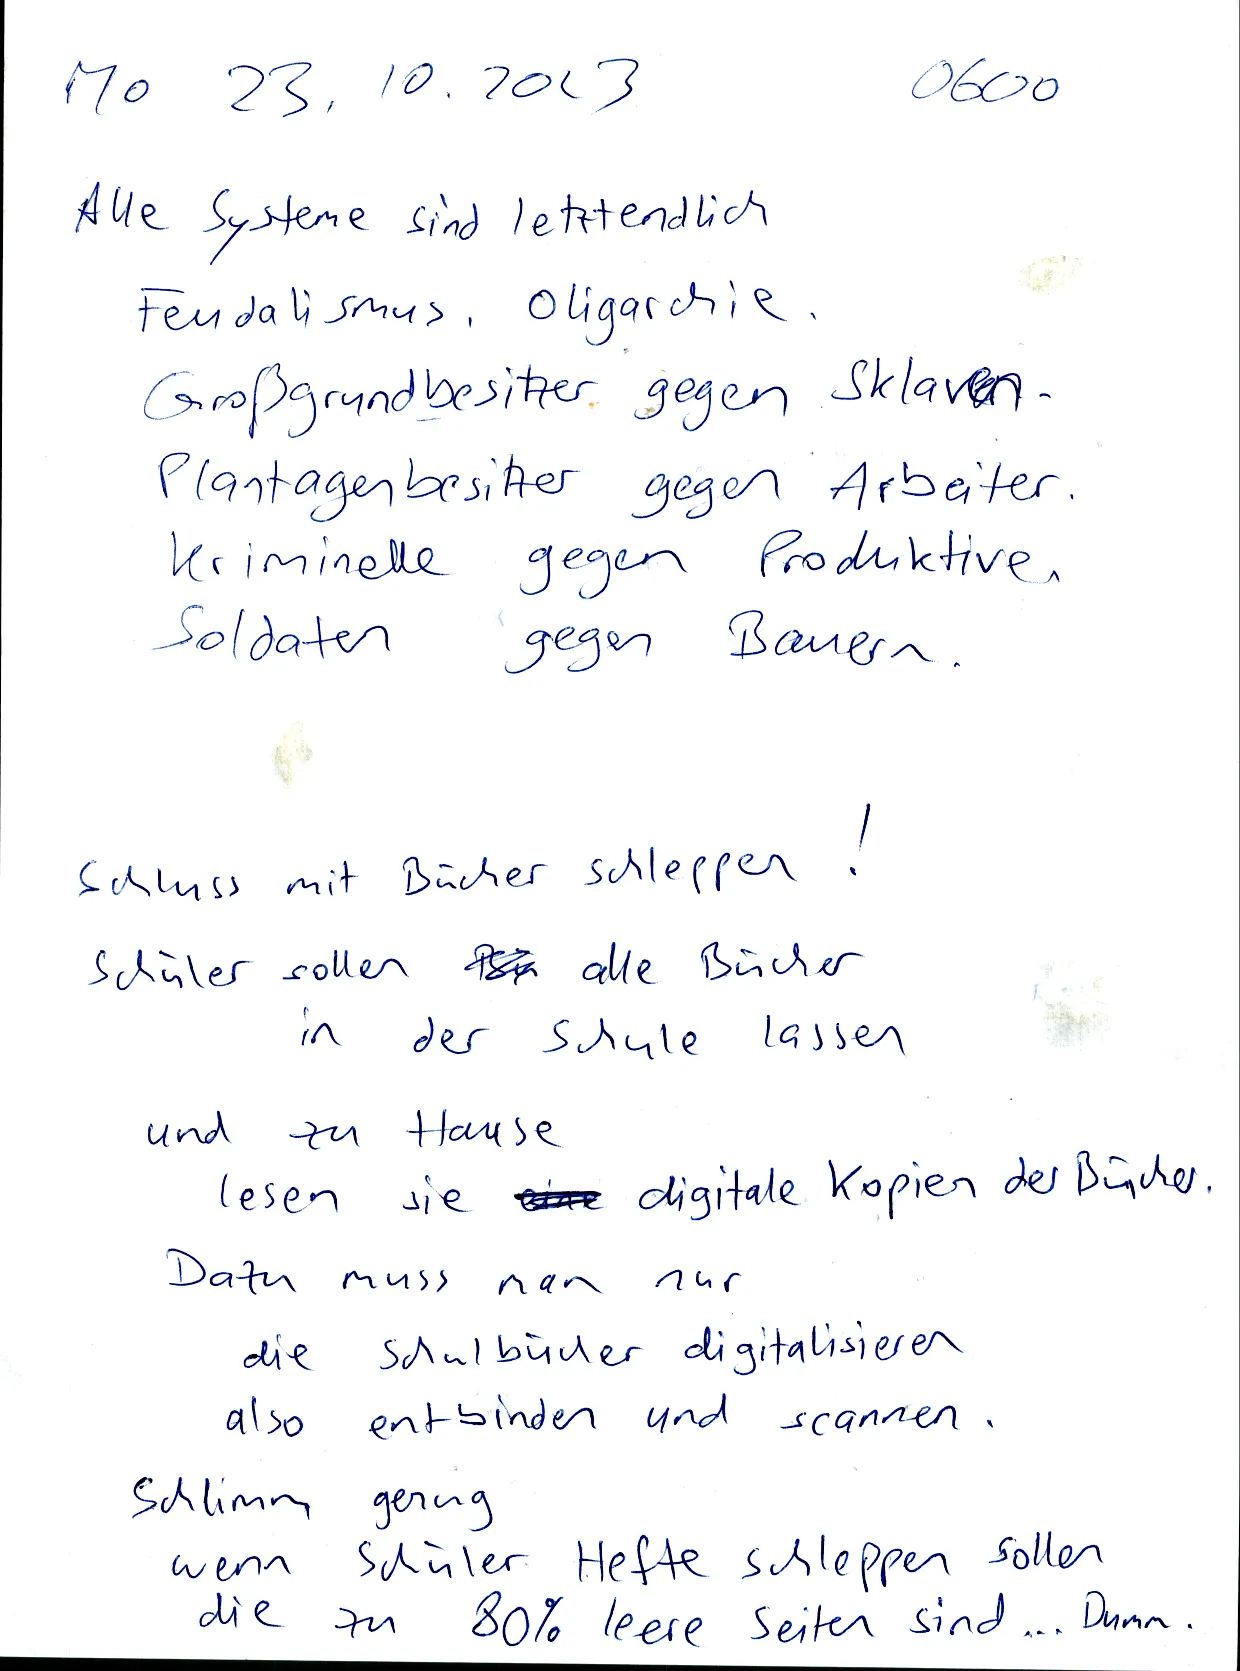 Mo 23.10.2023 0600
Alle Systeme sind letztendlich
Feudalismus. Oligarchie.
Großgrundbesitzer gegen Sklaven.
Plantagenbesitzer gegen Arbeiter.
Kriminelle gegen Produktive.
Soldaten gegen Bauern.
Schluss mit Bücher schleppen!
Schüler sollen alle Bücher
in der Schule lassen
und zu Hause
lesen sie digitale Kopien der Bücher.
Dazu muss man nur
die Schulbücher digitalisieren
also entbinden und scannen.
Schlimm genug
wenn Schüler Hefte schleppen sollen
die zu 80% leere Seiten sind... Dumm.